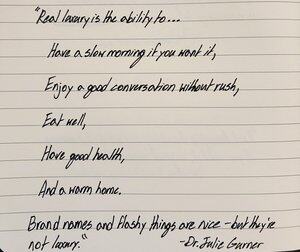 "Real luxury is the ability to...
Have a slow morning if you want it,
Enjoy a good conversation without rush,
Eat well,
Have good health,
And a warm home.
Brand names and flashy things are nice - but they're
not luxury."
-Dr. Julie Gurner